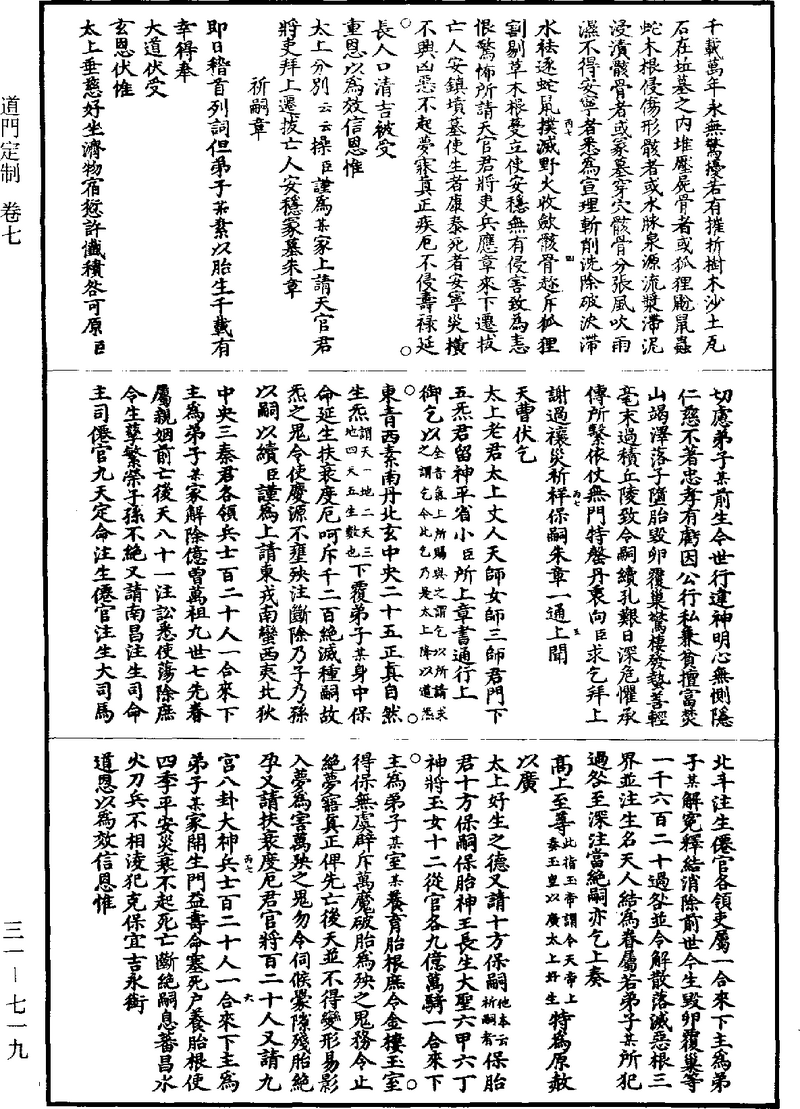 道門定制 卷七
三一—七一九
千載萬年永無驚擾若有摧折樹木沙土瓦
石在坵墓之內堆壓屍骨者或狐狸鼢鼠蟲
蛇木根侵傷形骸者或水脉泉源流漿滯泥
浸漬骸骨者或冢墓穿穴骸骨分張風吹雨
濕不得安寧者悉為宣理斬削洗除破決滯
水祛逐蛇鼠撲滅野火收歛骸骨趂斥狐狸
割剔草木根蔓立使安穩無有侵害致為恚
恨驚怖所請天官君將吏兵應章來下遷拔
亡人安鎮墳墓使生者康泰死者安寧災橫
不興凶惡不起夢寐真正疾厄不侵壽祿延
長人口清吉被受
重恩以為效信恩惟
太上分別云云操臣謹為某家上請天官君
將吏拜上遷拔亡人安穩冢墓朱章
祈嗣章
即日稽首列詞但弟子某素以胎生千載有
幸得奉
大道伏受
玄恩伏惟
太上垂慈好坐濟物宿愆許懺積咎可原臣
切慮弟子某前生今世行違神明心無惻隱
仁慈不著忠孝有虧因公行私兼貧擅富焚
山竭澤落子墮胎毀卵覆巢驚棲發蟄善輕
毫末過積丘陵致令嗣續孔艱日深危懼承
傳所繫依仗無門特罄丹衷向臣求乞拜上
謝過禳災祈祥保嗣朱章一通上聞
天曹伏乞
太上老君太上丈人天師女師三師君門下
五炁君留神平省小臣所上章書通行上
御乞以全音氣上所賜與之謂乞以所請求之謂乞今此乞乃是太上降以道炁
東青西素南丹北玄中央二十五正真自然
生炁謂天一地二天三地四天五生數也下覆弟子某身中保
命延生扶衰度厄呵斥千二百絕滅種嗣故
炁之鬼令使慶源不壅殃注斷除乃子乃孫
以嗣以續臣謹為上請東戎南蠻西夷北狄
中央三秦君各領兵士百二十人一合來下
主為弟子某家解除億曾萬祖九世七先眷
屬親姻前亡後夭八十一注訟悉使蕩除庶
令生孽繁榮子孫不絕又請南昌注生司命
主司僊官九天定命注生僊官注生大司馬
北斗注生僊官各領吏屬一合來下主為弟
子某解寃釋結消除前世今生毀卵覆巢等
一千六百二十過咎並令解散落滅惡根三
界並注生名天人結為眷屬若弟子某所犯
過咎至深注當絕嗣亦乞上奏
高上至尊此指玉帝謂今天帝上奏玉皇以廣太上好生特為原赦
以廣
太上好生之德又請十方保嗣他本云祈嗣者保胎
君十方保嗣保胎神王長生大聖六甲六丁
神將玉女十二從官各九億萬騎一合來下
主為弟子某室某養育胎根庶令金樓玉室
得保無虞辟斥萬魔破胎為殃之鬼務令止
絕夢寤真正俾先亡後夭並不得變形易影
入夢為害萬殃之鬼勿令伺候釁隙殘胎絕
孕又請扶衰度厄君官將百二十人又請九
宮八卦大神兵士百二十人一合來下主為
弟子某家開生門益壽命塞死户養胎根使
四季平安災衰不起死亡斷絕嗣息蕃昌水
火刀兵不相淩犯克保宜吉永銜
道恩以為效信恩惟